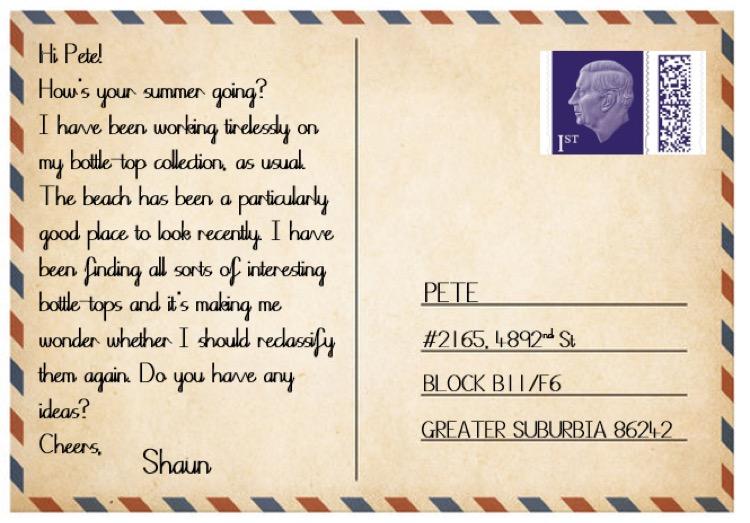 Hi Pete!
How's your summer going?
I have been working tirelessly on
my bottle-top collection, as usual.
The beach has been a particularly
good place to look recently. I have
been finding all sorts of interesting
bottle-tops and it's making me
wonder whether I should reclassify
them again. Do you have any
ideas?
Cheers,
Shaun
1ST
PETE
#2165, 4892nd St
BLOCK B11/F6
GREATER SUBURBIA 86242